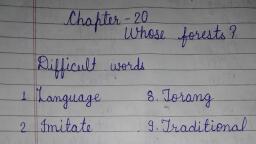 Chapter-20
Whose forests?
Difficult words
1 Language 8. Torang
2 Imitate 9. Traditional